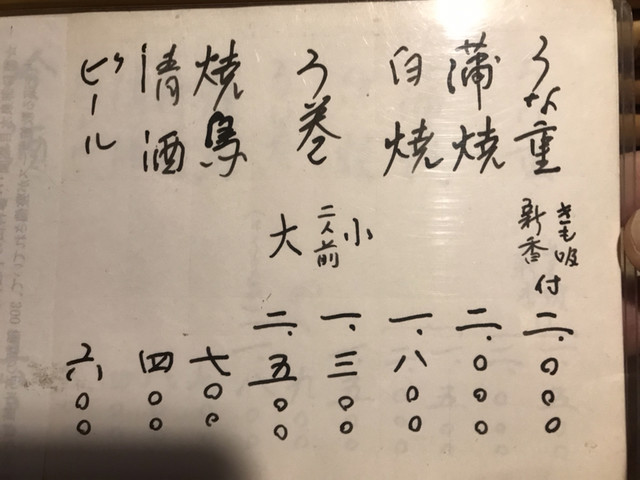 うな重 きも吸 新香 付 二、〇〇〇
蒲焼 二、〇〇〇
白焼 一、八〇〇
う巻 小 二人前 一、三〇〇
大 二、五〇〇
焼鳥 七〇〇
清酒 四〇〇
ビール 六〇〇